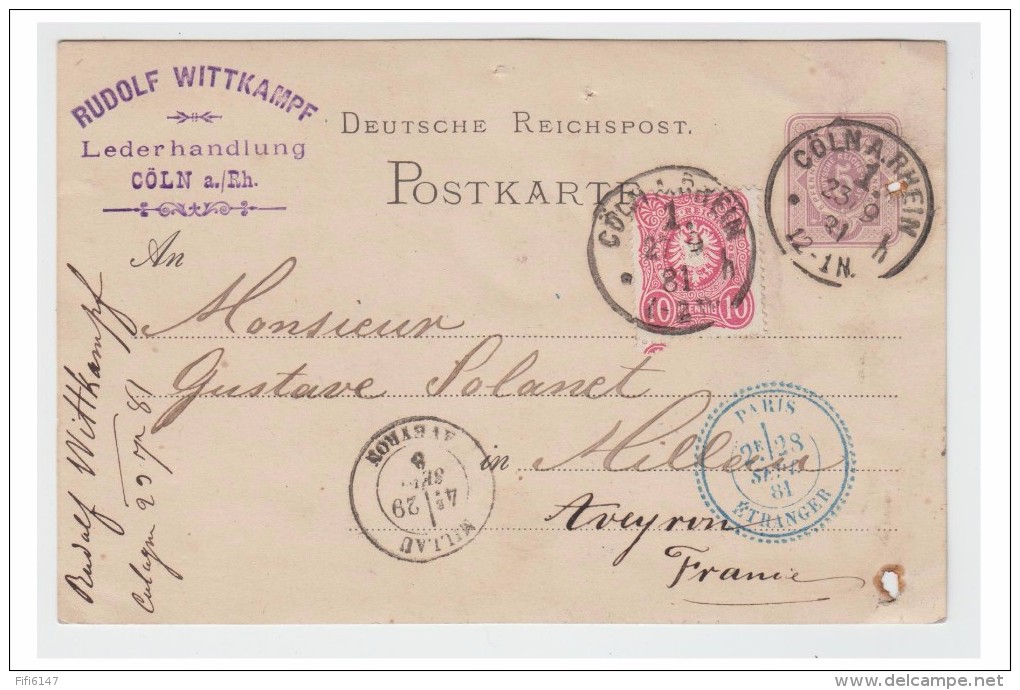 RUDOLF WITTKAMPF
Lederhandlung
CÖLN a./Rh.
DEUTSCHE REICHSPOST.
POSTKARTE
CÖLN A. RHEIN
1.
23 9
81 h
12-1N.
CÖLN A. RHEIN
1.
9
81 h
10 PFENNIG 10
5
An
Monsieur
Gustave Solanet
in Millau
Aveyron
France
PARIS
2E 28
SEPT
81
ETRANGER
AVEYRON
8
SEPT
4E 29
MILLAU
Rudolf Wittkampf
23 81
Fifi6147
www.delcampe.net